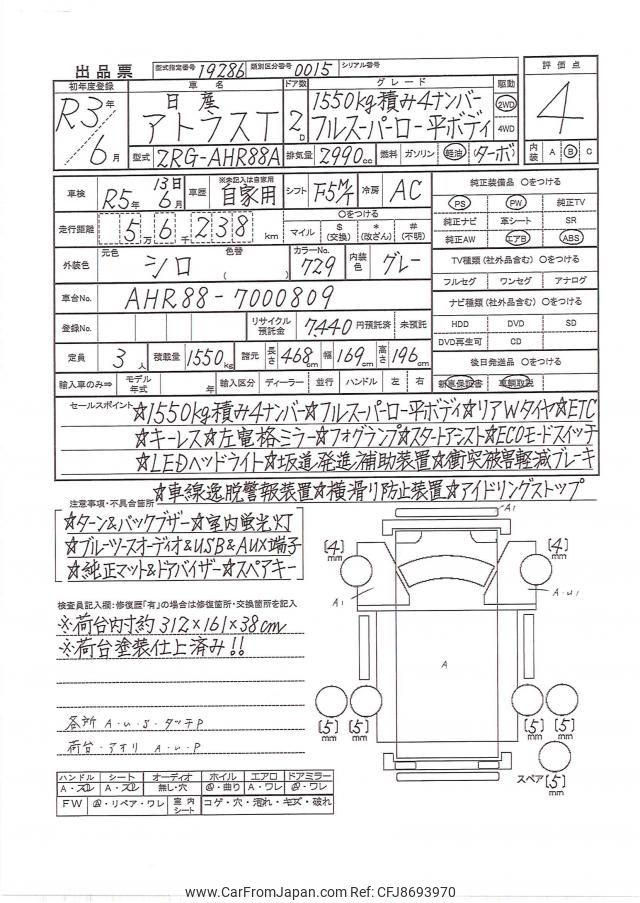 出品票 型式指定番号 19286 類別区分番号 0015 シリアル番号
初年度登録 車名 ドア数 グレード 駆動 評価点
R3年 6月 日産 アトラスT 2D 1550kg積み4ナンバー フルスーパーロー平ボディ 2WD 4WD 4
型式 2RG-AHR88A 排気量 2990cc 燃料 ガソリン 軽油 ターボ 内装 A B C
車検 R5年 13日 6月 車歴 ※未記入は自家用 自家用 シフト F5M/T 冷房 AC 純正装備品 ○をつける
PS PW 純正TV
走行距離 5万6千238km ○をつける マイル $(交換) *(改ざん) #(不明) 純正ナビ 革シート SR
純正AW エアB ABS
外装色 元色 シロ 色替 ( ) カラーNo. 729 内装色 グレー TV種類(社外品含む) ○をつける
フルセグ ワンセグ アナログ
車台No. AHR88-7000809 ナビ種類(社外品含む) ○をつける
登録No. リサイクル預託金 7,440円預託済 未預託 HDD DVD SD
DVD再生可 CD
定員 3人 積載量 1550kg 諸元 長さ 468cm 幅 169cm 高さ 196cm 後日発送品 ○をつける
輸入車のみ⇒ モデル年式 年 輸入区分 ディーラー 並行 ハンドル 左 右 新車保証書 車輌取説
セールスポイント ☆1550kg積み4ナンバー☆フルスーパーロー平ボディ☆リアWタイヤ☆ETC
☆キーレス☆左電格ミラー☆フォグランプ☆スタートアシスト☆ECOモードスイッチ
☆LEDヘッドライト☆坂道発進補助装置☆衝突被害軽減ブレーキ
☆車線逸脱警報装置☆横滑り防止装置☆アイドリングストップ
注意事項・不具合箇所
☆ターン&バックブザー☆室内蛍光灯
☆ブルーツースオーディオ&USB&AUX端子
☆純正マット&ドアバイザー☆スペアキー
検査員記入欄:修復歴「有」の場合は修復箇所・交換箇所を記入
※荷台内寸約312×161×38cm
※荷台塗装仕上済み!!
各所 A・U・S・タッチP
荷台・アオリ A・U・P
A1
[4]mm [4]mm
A1 A・U1
A
[5]mm [5]mm [5]mm [5]mm
スペア [5]mm
ハンドル シート オーディオ ホイル エアロ ドアミラー
A・スレ A・スレ 無し・穴 曲り A・ワレ ワレ
FW リペア・ワレ 室内シート コゲ・穴・汚れ・キズ・破れ
www.CarFromJapan.com Ref: CFJ8693970